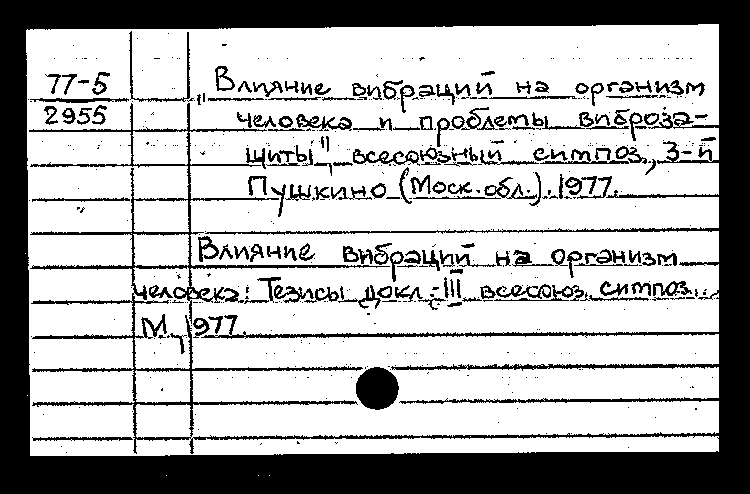 77-5
2955
„Влияние вибраций на организм
человека и проблемы виброза-
щиты", всесоюзный симпоз., 3-й
Пушкино (Моск. обл.). 1977.
Влияние вибраций на организм
человека: Тезисы докл. III всесоюз. симпоз..
М., 1977.